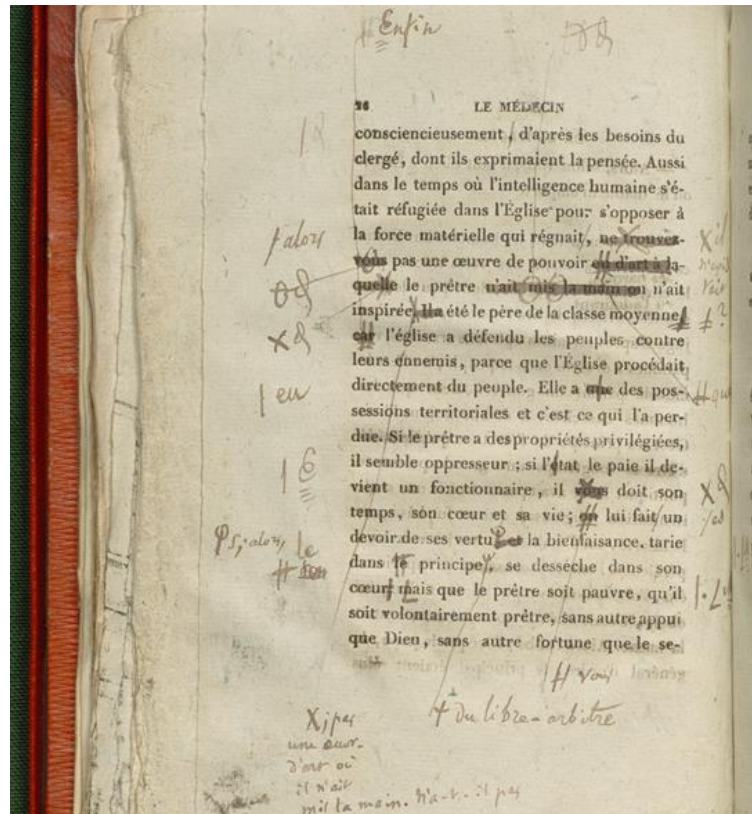 Enfin
26 LE MÉDECIN
consciencieusement, d'après les besoins du
clergé, dont ils exprimaient la pensée. Aussi
dans le temps où l'intelligence humaine s'é-
tait réfugiée dans l'Église pour s'opposer à
la force matérielle qui régnait, ne trouvez-
vous pas une œuvre de pouvoir ou d'art à la-
quelle le prêtre n'ait mis la main ou n'ait
inspirée. Il a été le père de la classe moyenne,
car l'église a défendu les peuples contre
leurs ennemis, parce que l'Église procédait
directement du peuple. Elle a des pos-
sessions territoriales et c'est ce qui l'a per-
due. Si le prêtre a des propriétés privilégiées,
il semble oppresseur ; si l'état le paie il de-
vient un fonctionnaire, il vous doit son
temps, son cœur et sa vie ; on lui fait un
devoir de ses vertus et la bienfaisance, tarie
dans le principe, se desséche dans son
cœur mais que le prêtre soit pauvre, qu'il
soit volontairement prêtre, sans autre appui
que Dieu, sans autre fortune que le se-
alors
en
s, alors
le
il
?
vous
du libre-arbitre
X; pas
une œuvr-
d'art où
il n'ait
mis la main. n'a-t-il pas